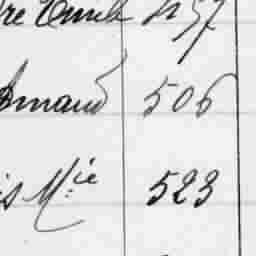 re Emile 457
Armand 506
is Mie 523